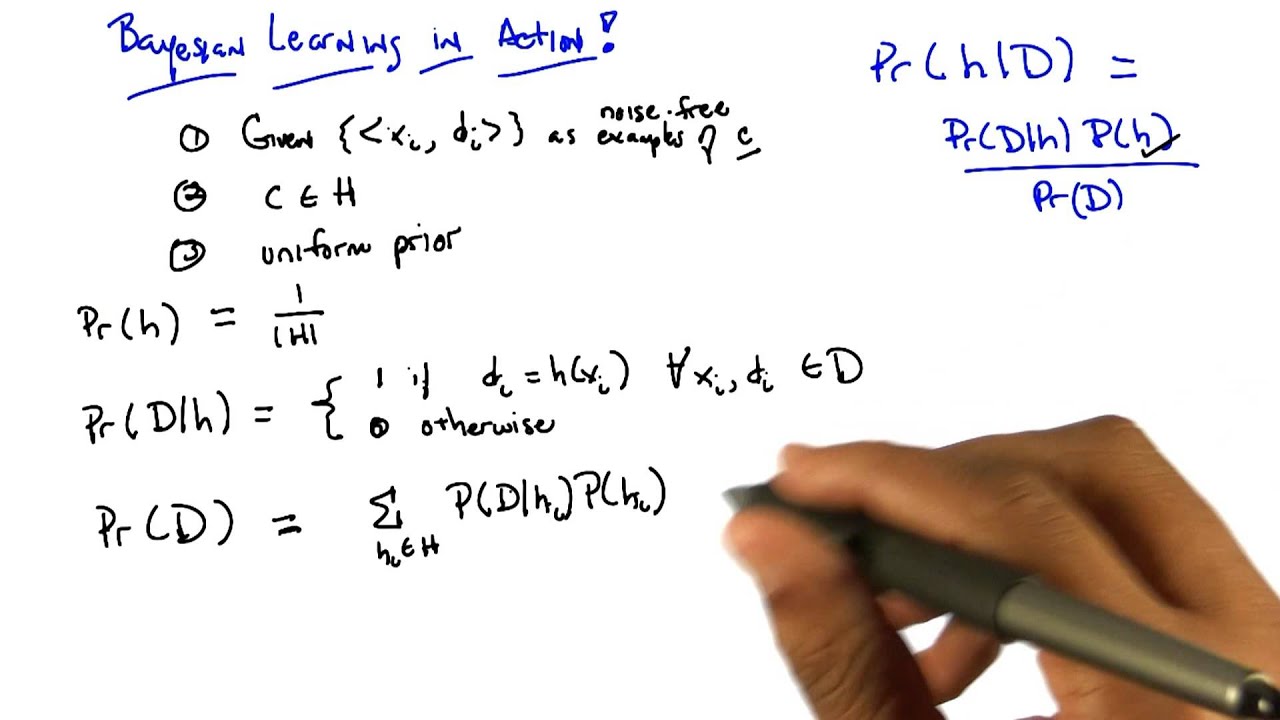 Bayesian Learning in Action!
Pr(h|D) =
Pr(D|h) P(h)
Pr(D)
① Given {<xᵢ, dᵢ>} as noise-free examples of c
② c ∈ H
③ uniform prior
Pr(h) = 1/|H|
Pr(D|h) = { 1 if dᵢ = h(xᵢ) ∀xᵢ, dᵢ ∈ D
0 otherwise
Pr(D) = Σ P(D|hᵢ)P(hᵢ)
hᵢ∈H